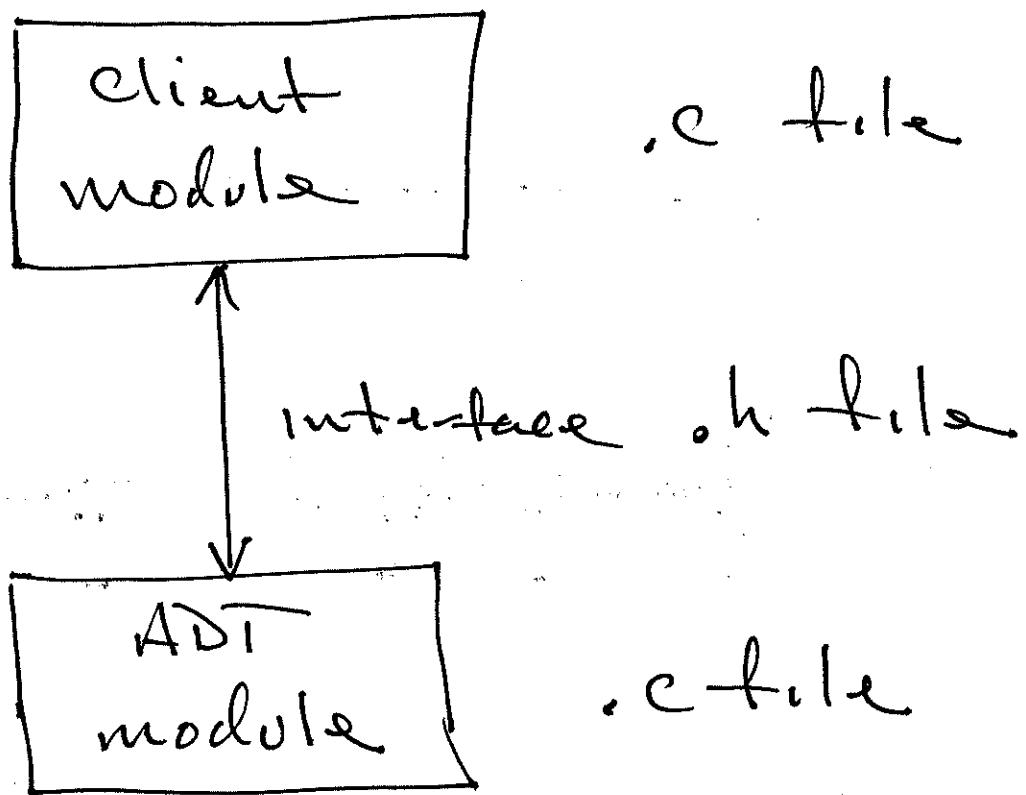 Client
module
.c file
interface .h file
ADT
module
.c file